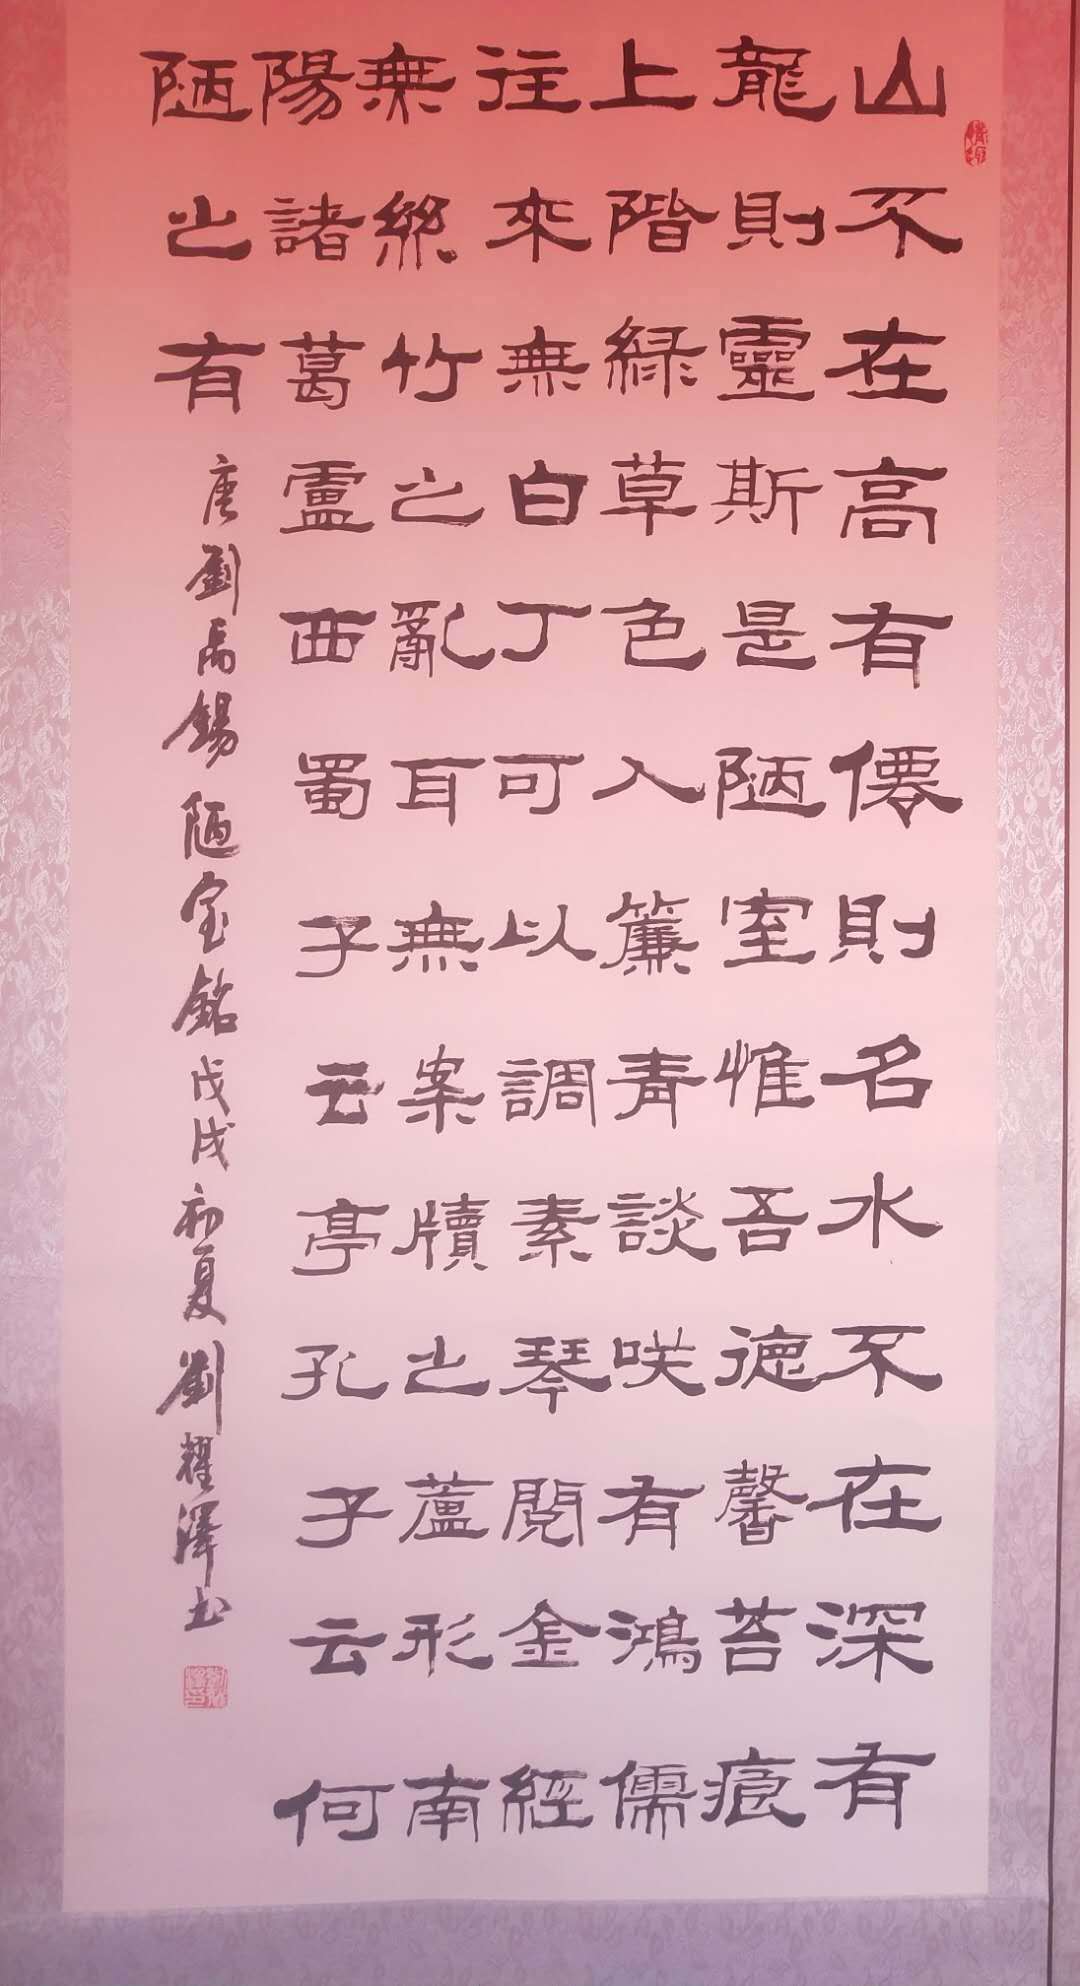 山不在高有僊則名水不在深有
龍則靈斯是陋室惟吾德馨苔痕
上階緑草色入簾青談咲有鴻儒
往來無白丁可以調素琴閱金經
無絲竹之亂耳無案牘之蘆形南
陽諸葛盧西蜀子云亭孔子云何
陋之有
唐劉禹錫陋室銘戊戌初夏劉耀澤书